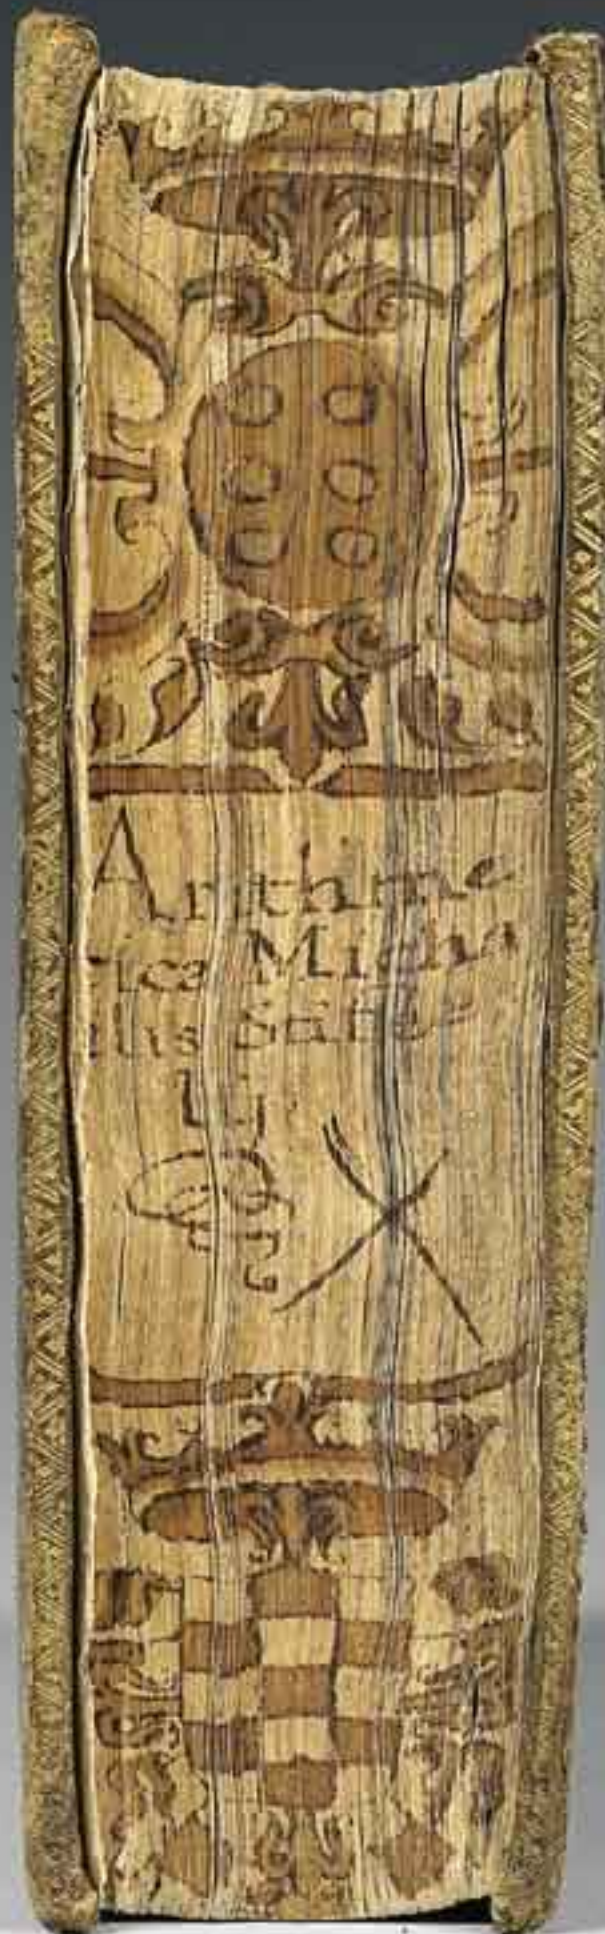 Arithme
tica Micha
elis Stifel
ij